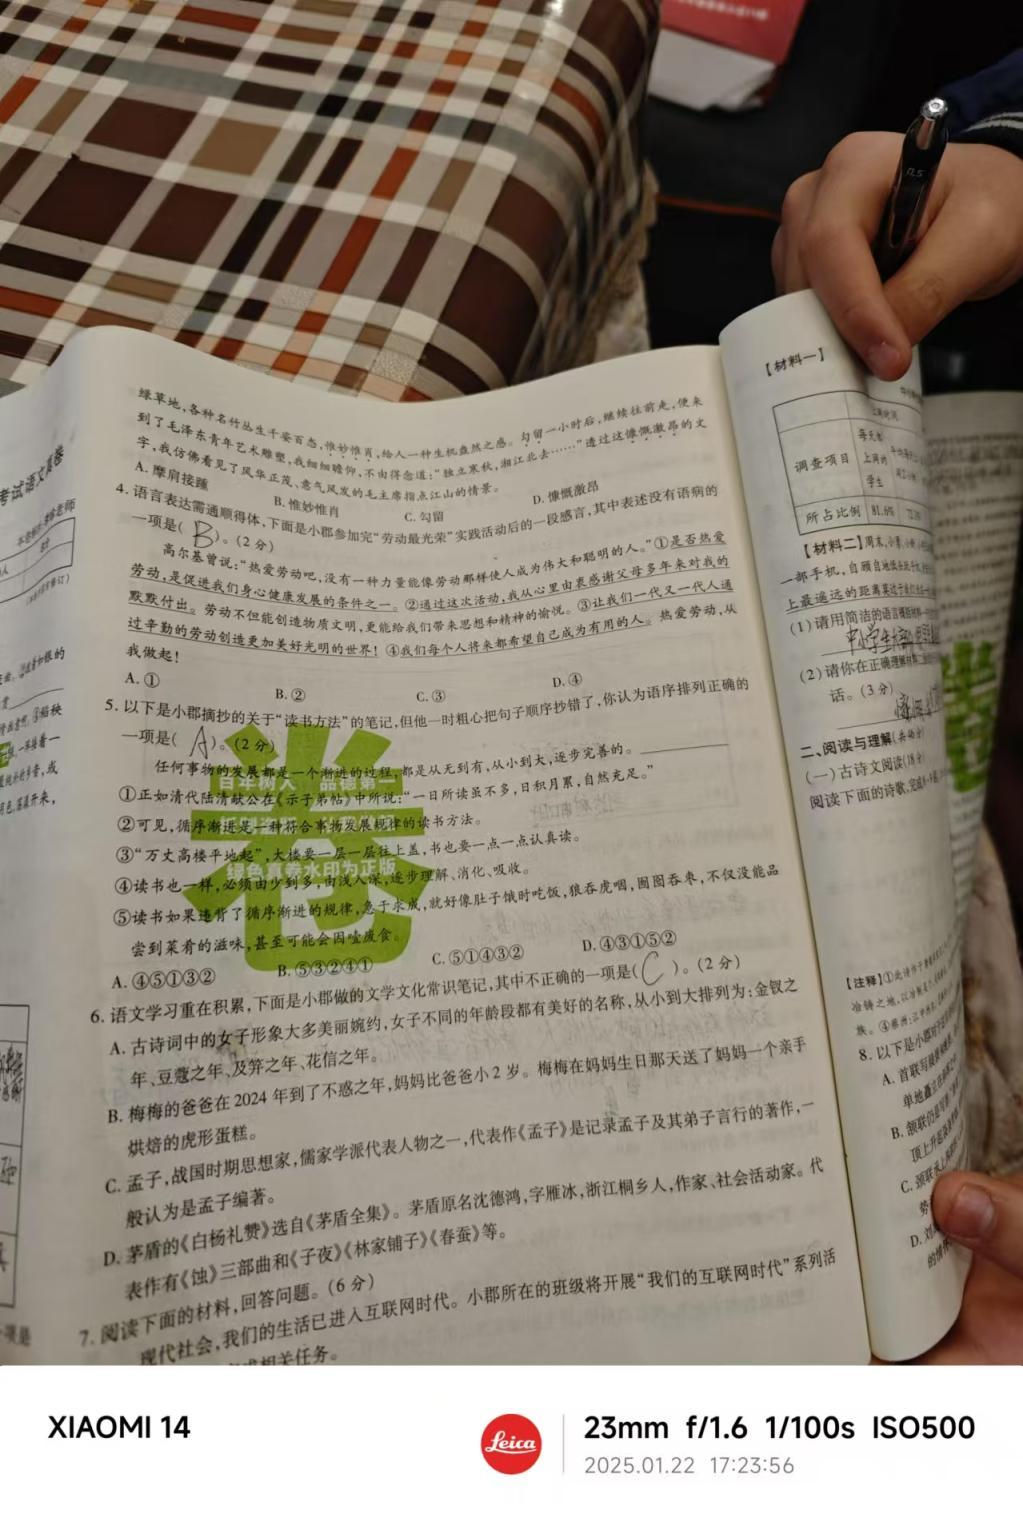 绿草地,各种名竹丛生千姿百态,惟妙惟肖,给人一种生机盎然之感。勾留一小时后,继续往前走,便来
到了毛泽东青年艺术雕塑,我细细瞻仰,不由得念道:“独立寒秋,湘江北去……”透过这慷慨激昂的文
字,我仿佛看见了风华正茂、意气风发的毛主席指点江山的情景。
A. 摩肩接踵 B. 惟妙惟肖 C. 勾留 D. 慷慨激昂
4. 语言表达需通顺得体,下面是小郡参加完“劳动最光荣”实践活动后的一段感言,其中表述没有语病的
一项是( B )。(2 分)
高尔基曾说:“热爱劳动吧,没有一种力量能像劳动那样使人成为伟大和聪明的人。”①是否热爱
劳动,是促进我们身心健康发展的条件之一。②通过这次活动,我从心里由衷感谢父母多年来对我的
默默付出。劳动不但能创造物质文明,更能给我们带来思想和精神的愉悦。③让我们一代又一代人通
过辛勤的劳动创造更加美好光明的世界!④我们每个人将来都希望自己成为有用的人。热爱劳动,从
我做起!
A. ① B. ② C. ③ D. ④
5. 以下是小郡摘抄的关于“读书方法”的笔记,但他一时粗心把句子顺序抄错了,你认为语序排列正确的
一项是( A )。(2 分)
任何事物的发展都是一个渐进的过程,都是从无到有,从小到大,逐步完善的。
①正如清代陆清献公在《示子弟帖》中所说:“一日所读虽不多,日积月累,自然充足。”
②可见,循序渐进是一种符合事物发展规律的读书方法。
③“万丈高楼平地起”,大楼要一层一层往上盖,书也要一点一点认真读。
④读书也一样,必须由少到多,由浅入深,逐步理解、消化、吸收。
⑤读书如果违背了循序渐进的规律,急于求成,就好像肚子饿时吃饭,狼吞虎咽,囫囵吞枣,不仅没能品
尝到菜肴的滋味,甚至可能会因噎废食。
A. ④⑤①③② B. ⑤③②④① C. ⑤①④③② D. ④③①⑤②
6. 语文学习重在积累,下面是小郡做的文学文化常识笔记,其中不正确的一项是( C )。(2 分)
A. 古诗词中的女子形象大多美丽婉约,女子不同的年龄段都有美好的名称,从小到大排列为:金钗之
年、豆蔻之年、及笄之年、花信之年。
B. 梅梅的爸爸在 2024 年到了不惑之年,妈妈比爸爸小 2 岁。梅梅在妈妈生日那天送了妈妈一个亲手
烘焙的虎形蛋糕。
C. 孟子,战国时期思想家,儒家学派代表人物之一,代表作《孟子》是记录孟子及其弟子言行的著作,一
般认为是孟子编著。
D. 茅盾的《白杨礼赞》选自《茅盾全集》。茅盾原名沈德鸿,字雁冰,浙江桐乡人,作家、社会活动家。代
表作有《蚀》三部曲和《子夜》《林家铺子》《春蚕》等。
7. 阅读下面的材料,回答问题。(6 分)
现代社会,我们的生活已进入互联网时代。小郡所在的班级将开展“我们的互联网时代”系列活
相关任务。
卷
百年树人 品德第一
绿色真卷水印为正版
考试语文真卷
【材料一】
上网时间
调查项目
每天都
上网的
学生
所占比例 81.6%
【材料二】周末,小
一部手机,自顾自地
上最遥远的距离莫过于
(1) 请用简洁的语言
中小学生
(2) 请你在正确理解材
话。(3 分)
二、阅读与理解
(一) 古诗文阅读
阅读下面的诗歌,完成
【注释】①此诗作于
8. 以下是小郡
A. 首联写
单地矗立在
B. 颔联仍
顶上升
C. 颈联
D. 刘
的情
XIAOMI 14
Leica
23mm f/1.6 1/100s ISO500
2025.01.22 17:23:56